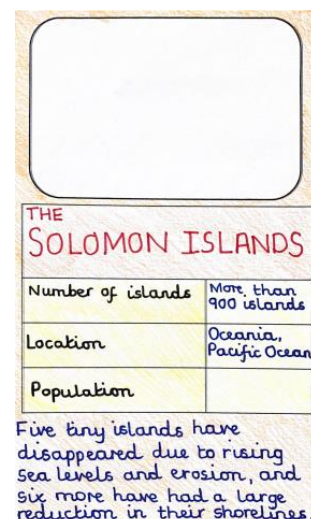 THE
SOLOMON ISLANDS
Number of islands
More than
900 islands
Location
Oceania,
Pacific Ocean
Population
Five tiny islands have
disappeared due to rising
sea levels and erosion, and
six more have had a large
reduction in their shorelines.